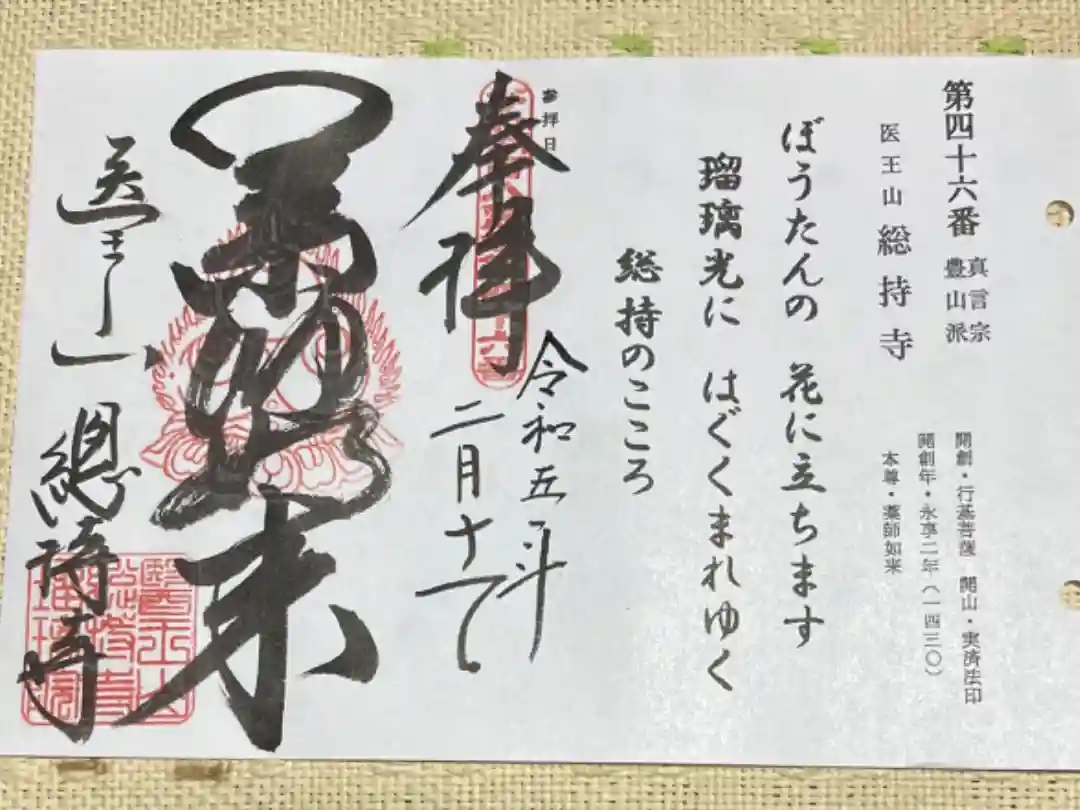 第四十六番
真言宗
豊山派
医王山 総持寺
開創・行基菩薩 開山・実済法印
開創年・永享二年(一四三〇)
本尊・薬師如来
ぼうたんの 花に立ちます
瑠璃光に はぐくまれゆく
総持のこころ
参拝日
奉拝
令和五年
二月十
如来
医王山 總持寺